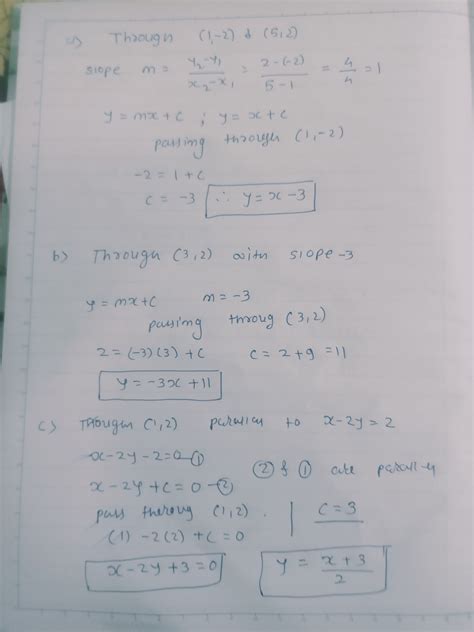 a) Through (1,-2) & (5,2)
slope m = y₂-y₁ / x₂-x₁ = 2-(-2) / 5-1 = 4/4 = 1
y = mx+c ; y = x+c
passing through (1,-2)
-2 = 1+c
c = -3 ∴ y = x-3
b) Through (3,2) with slope -3
y = mx+c m = -3
passing throug (3,2)
2 = (-3)(3) + c c = 2+9 = 11
y = -3x +11
c) Through (1,2) parallel to x-2y = 2
x-2y-2=0 -①
x-2y+c = 0 -② ② & ① are parallel
pass theroug (1,2). c = 3
(1) -2(2) +c = 0
x-2y+3=0 y = x+3 / 2